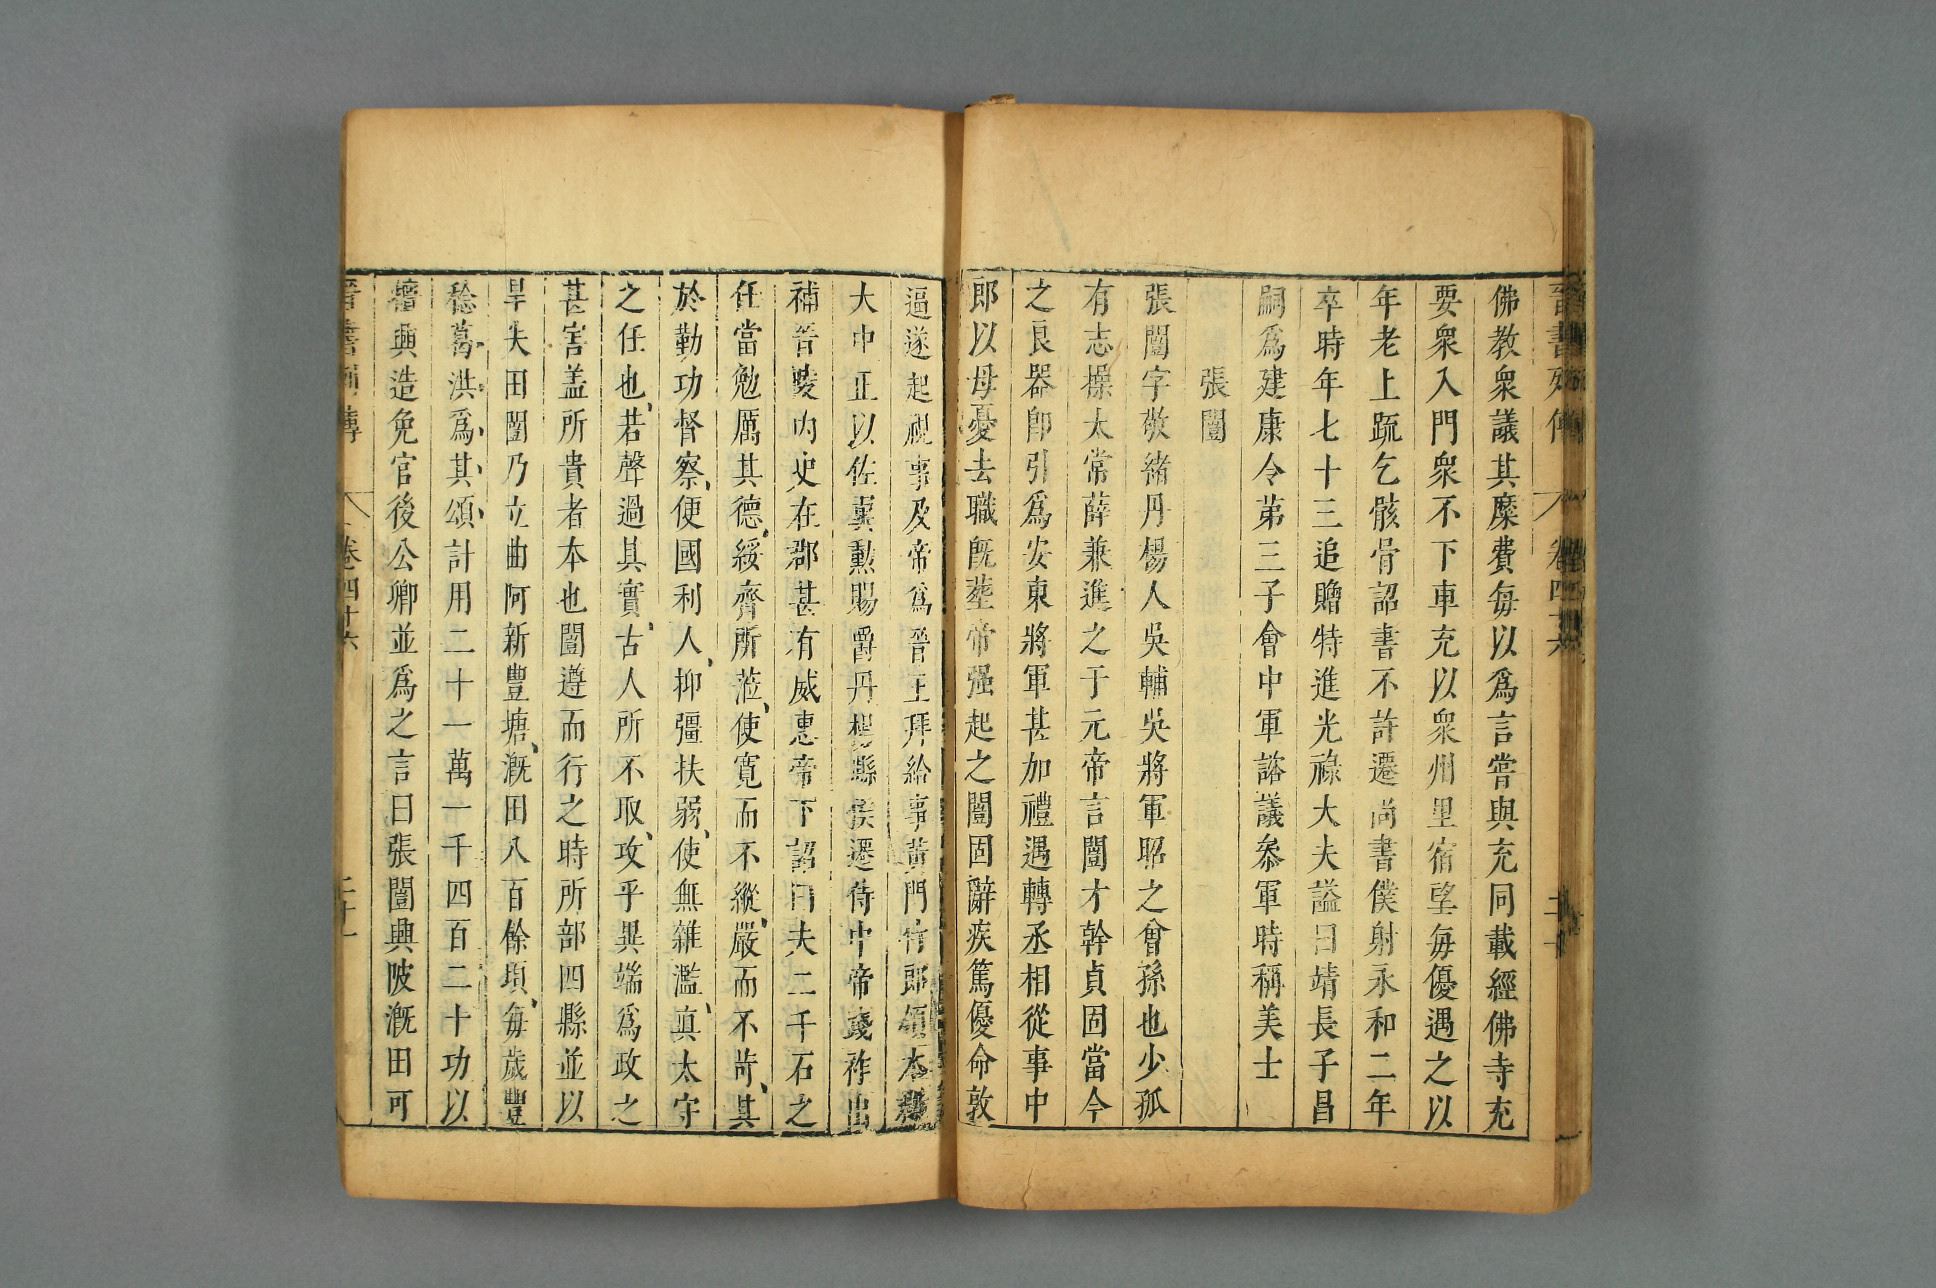 晉書列傳 卷四十六 二十
佛教衆議其糜費每以爲言嘗與充同載經佛寺充
要衆入門衆不下車充以衆州里宿望每優遇之以
年老上疏乞骸骨詔書不許遷尚書僕射永和二年
卒時年七十三追贈特進光祿大夫謚曰靖長子昌
嗣爲建康令第三子會中軍諮議叅軍時稱美士
張闓
張闓字敬緒丹楊人吳輔吳將軍昭之曾孫也少孤
有志操太常薛兼進之于元帝言闓才幹貞固當今
之良器卽引爲安東將軍甚加禮遇轉丞相從事中
郎以母憂去職旣葬帝强起之闓固辭疾篤優命敦
逼遂起視事及帝爲晉王拜給事黃門侍郎領本郡
大中正以佐翼勲賜爵丹楊縣侯遷侍中帝踐祚出
補晉陵內史在郡甚有威惠帝下詔曰夫二千石之
任當勉厲其德、綏齊所蒞、使寬而不縱、嚴而不苛、其
於勤功督察、便國利人、抑彊扶弱、使無雜濫、眞太守
之任也、若聲過其實、古人所不取、攻乎異端爲政之
甚害盖所貴者本也闓遵而行之時所部四縣並以
旱失田闓乃立曲阿新豐塘、溉田八百餘頃、每歲豐
稔葛洪爲其頌計用二十一萬一千四百二十功以
擅興造免官後公卿並爲之言曰張闓興陂溉田可
晉書列傳 卷四十六 二十一